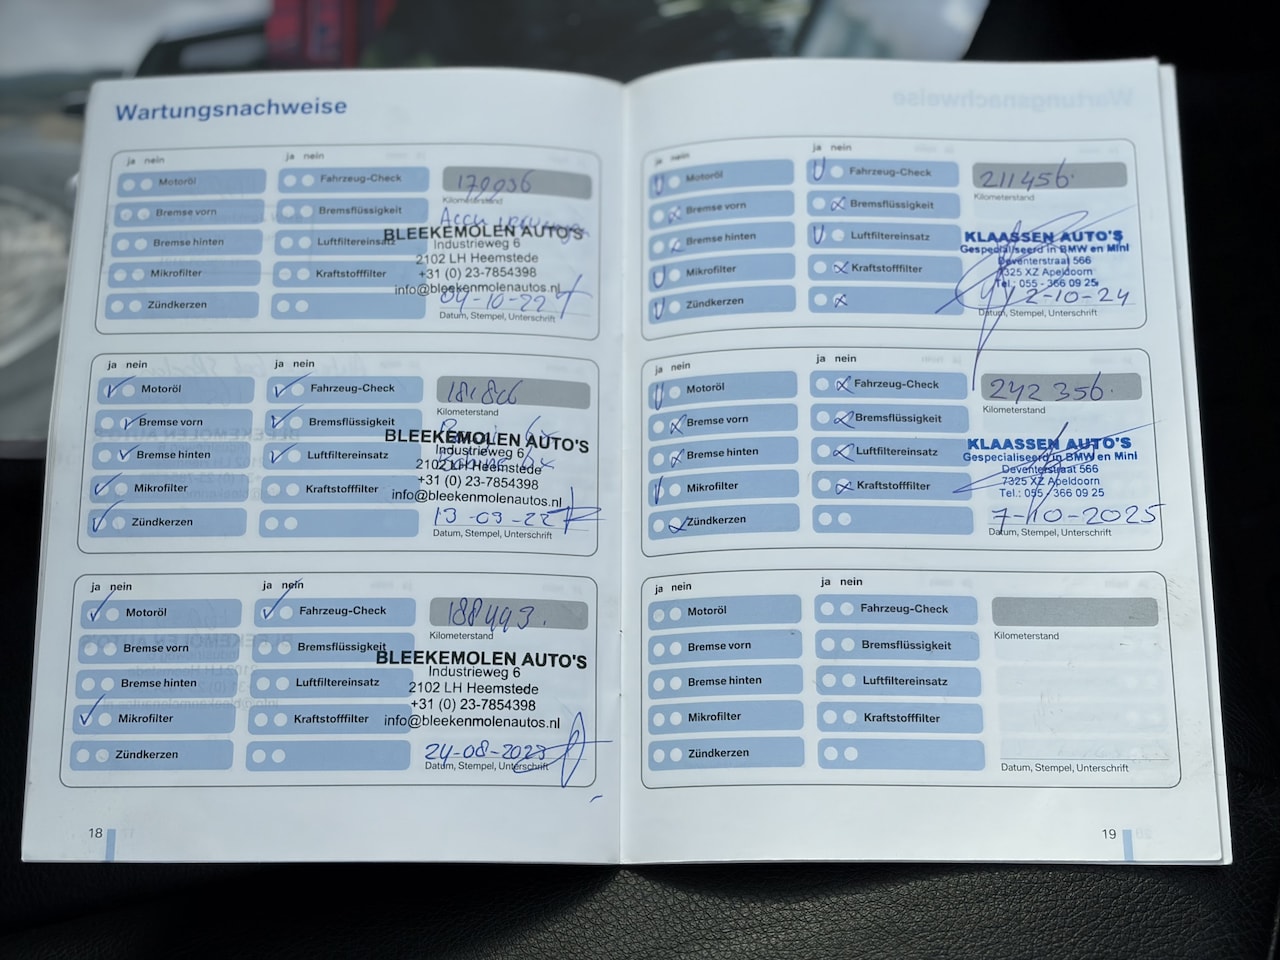 Wartungsnachweise
ja nein
ja nein
Motoröl
Fahrzeug-Check
Bremse vorn
Bremsflüssigkeit
Bremse hinten
Luftfiltereinsatz
Mikrofilter
Kraftstofffilter
Zündkerzen
Kilometerstand
Accu
BLEEKEMOLEN AUTO'S
Industrieweg 6
2102 LH Heemstede
+31 (0) 23-7854398
info@bleekenmolenautos.nl
04-10-22
Datum, Stempel, Unterschrift
ja nein
ja nein
Motoröl
Fahrzeug-Check
Bremse vorn
Bremsflüssigkeit
Bremse hinten
Luftfiltereinsatz
Mikrofilter
Kraftstofffilter
Zündkerzen
181866
Kilometerstand
BLEEKEMOLEN AUTO'S
Industrieweg 6
2102 LH Heemstede
+31 (0) 23-7854398
info@bleekenmolenautos.nl
Datum, Stempel, Unterschrift
ja nein
ja nein
Motoröl
Fahrzeug-Check
Bremse vorn
Bremsflüssigkeit
Bremse hinten
Luftfiltereinsatz
Mikrofilter
Kraftstofffilter
Zündkerzen
188493.
Kilometerstand
BLEEKEMOLEN AUTO'S
Industrieweg 6
2102 LH Heemstede
+31 (0) 23-7854398
info@bleekenmolenautos.nl
24-08-2023
Datum, Stempel, Unterschrift
18
ja nein
ja nein
Motoröl
Fahrzeug-Check
Bremse vorn
Bremsflüssigkeit
Bremse hinten
Luftfiltereinsatz
Mikrofilter
Kraftstofffilter
Zündkerzen
211456.
Kilometerstand
KLAASSEN AUTO'S
Gespecialiseerd in BMW en Mini
Deventerstraat 566
7325 XZ Apeldoorn
Tel.: 055 - 366 09 25
2-10-24
Datum, Stempel, Unterschrift
ja nein
ja nein
Motoröl
Fahrzeug-Check
Bremse vorn
Bremsflüssigkeit
Bremse hinten
Luftfiltereinsatz
Mikrofilter
Kraftstofffilter
Zündkerzen
242356.
Kilometerstand
KLAASSEN AUTO'S
Gespecialiseerd in BMW en Mini
Deventerstraat 566
7325 XZ Apeldoorn
Tel.: 055 - 366 09 25
7-10-2025
Datum, Stempel, Unterschrift
ja nein
ja nein
Motoröl
Fahrzeug-Check
Bremse vorn
Bremsflüssigkeit
Bremse hinten
Luftfiltereinsatz
Mikrofilter
Kraftstofffilter
Zündkerzen
Kilometerstand
Datum, Stempel, Unterschrift
19